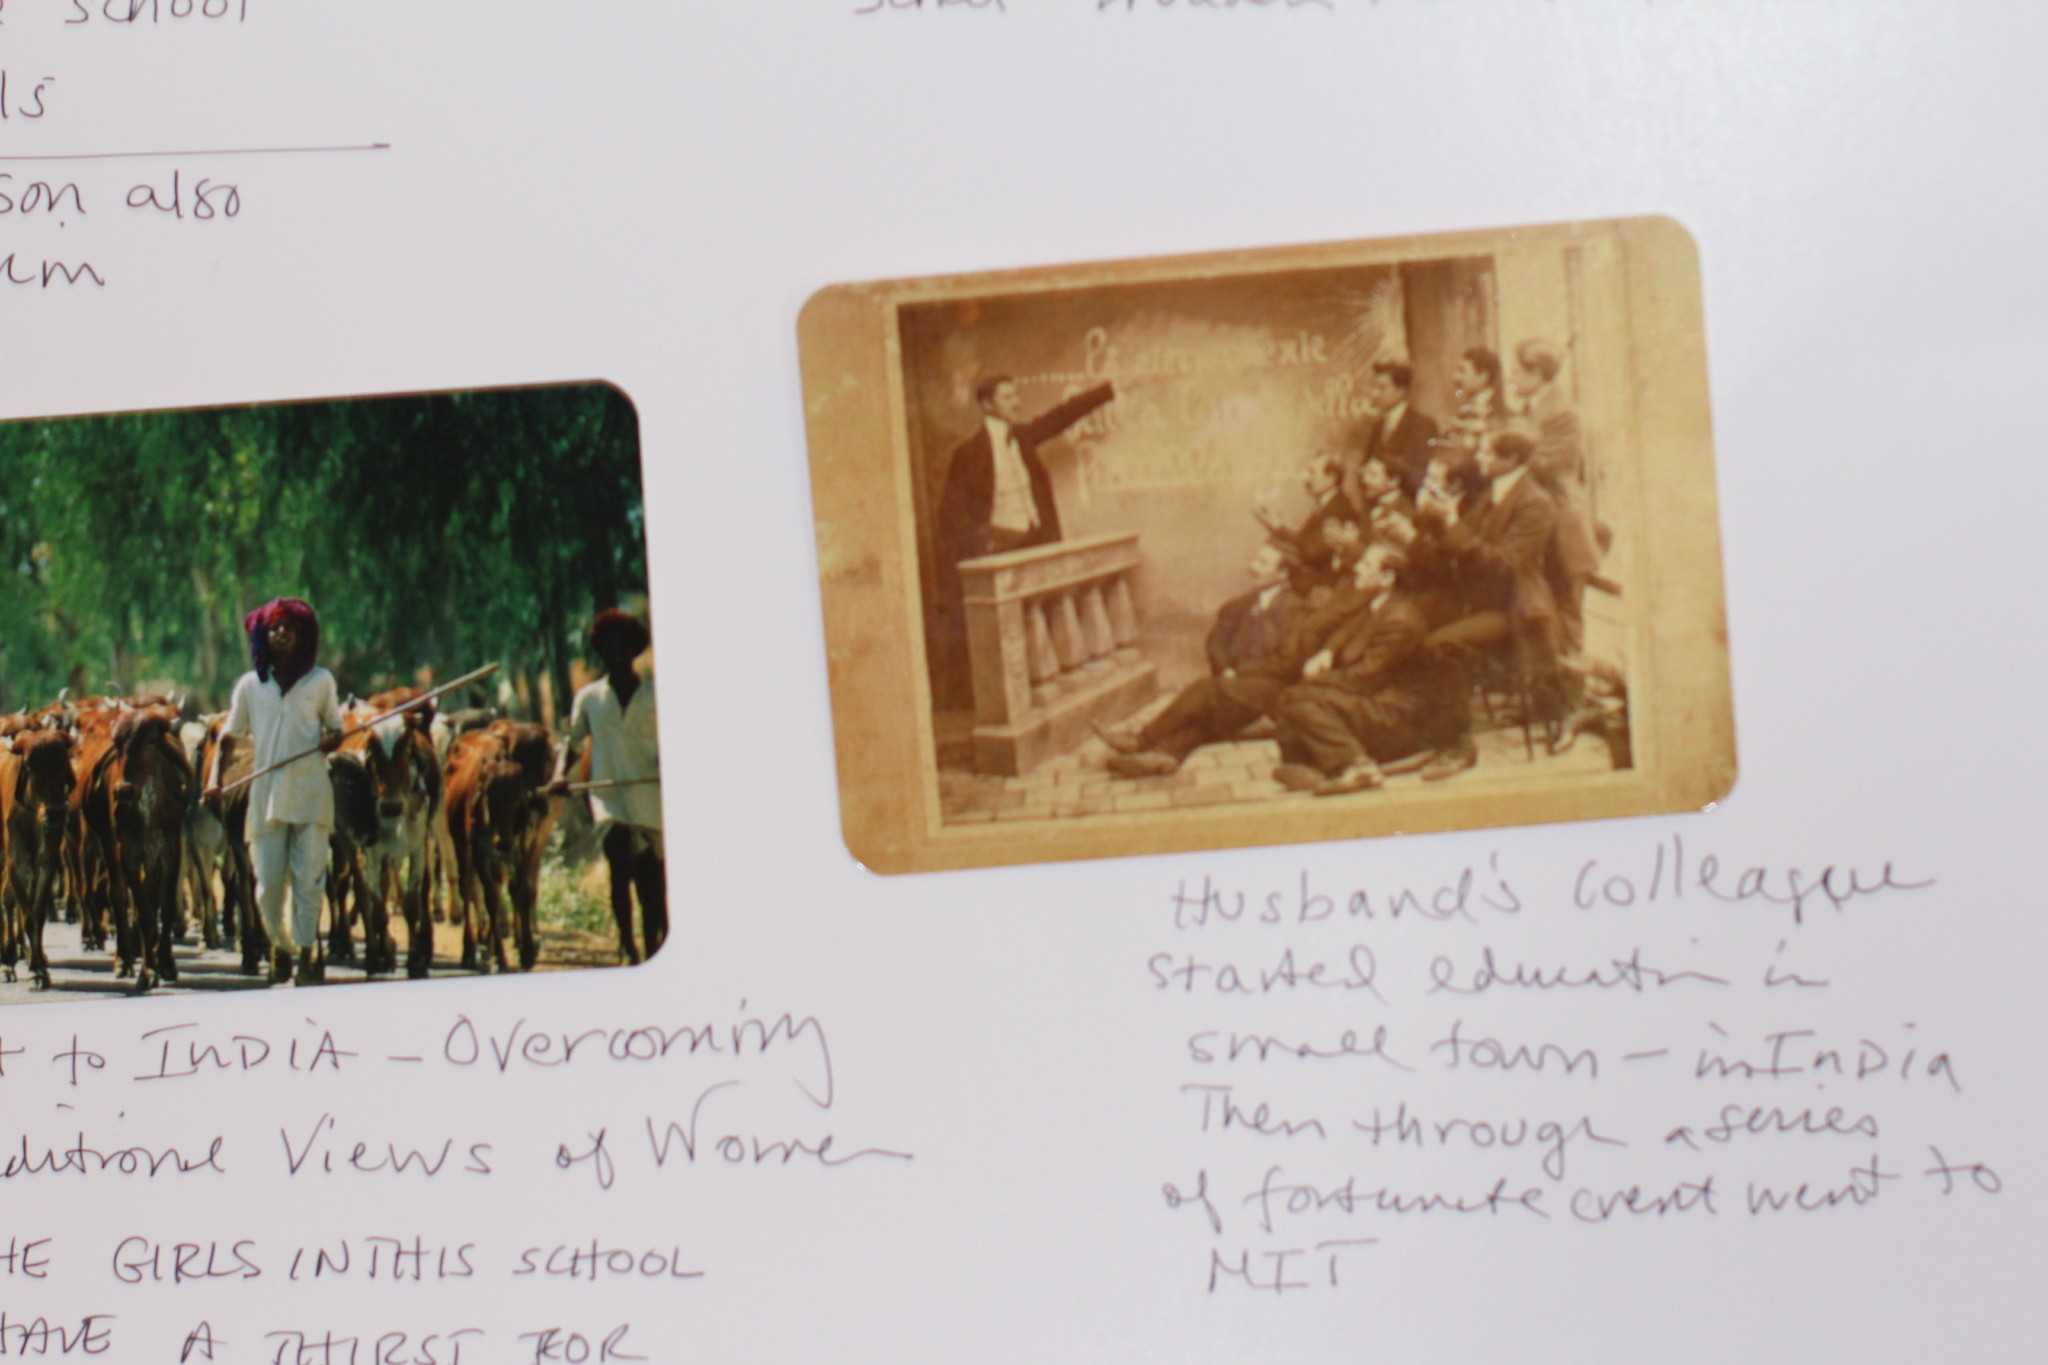 SCHOOL
ls
son also
um
t to INDIA - Overcoming
ditional Views of Women
HE GIRLS IN THIS SCHOOL
HAVE A THIRST FOR
Husband's Colleague
started education in
small town - in India
Then through a series
of fortunate event went to
MIT